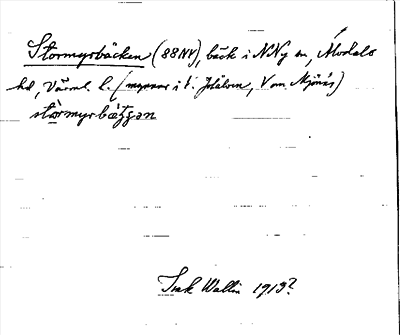 Stormyrbäcken (88NV), bäck i NNy sn, Älvdals
hd, Värml. l. (mynnar i t. Jhälven, V om Mjönäs)
stòrmyrbäҫҫən
Isak Wallin 1913?